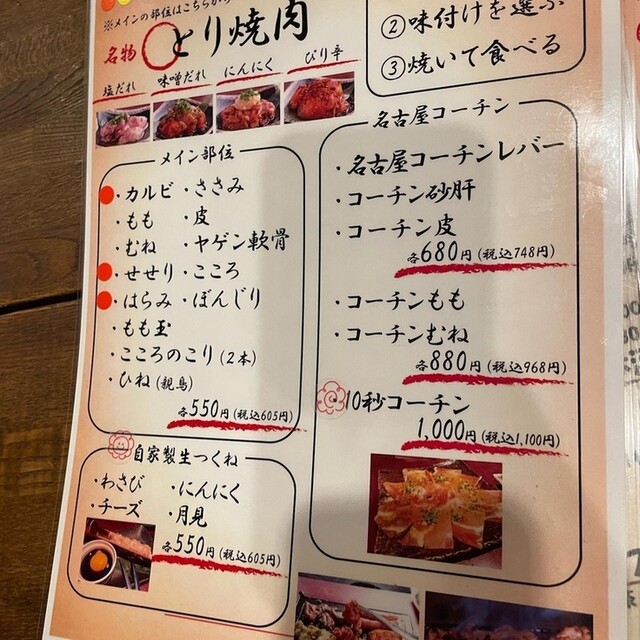 ※メインの部位はこちらから
名物 とり焼肉
塩だれ 味噌だれ にんにく ぴり辛
②味付けを選ぶ
③焼いて食べる
メイン部位
・カルビ ・ささみ
・もも ・皮
・むね ・ヤゲン軟骨
・せせり ・こころ
・はらみ ・ぼんじり
・もも玉
・こころのこり(2本)
・ひね(親鳥)
各550円(税込605円)
自家製生つくね
・わさび ・にんにく
・チーズ ・月見
各550円(税込605円)
名古屋コーチン
・名古屋コーチンレバー
・コーチン砂肝
・コーチン皮
各680円(税込748円)
・コーチンもも
・コーチンむね
各880円(税込968円)
10秒コーチン
1,000円(税込1,100円)